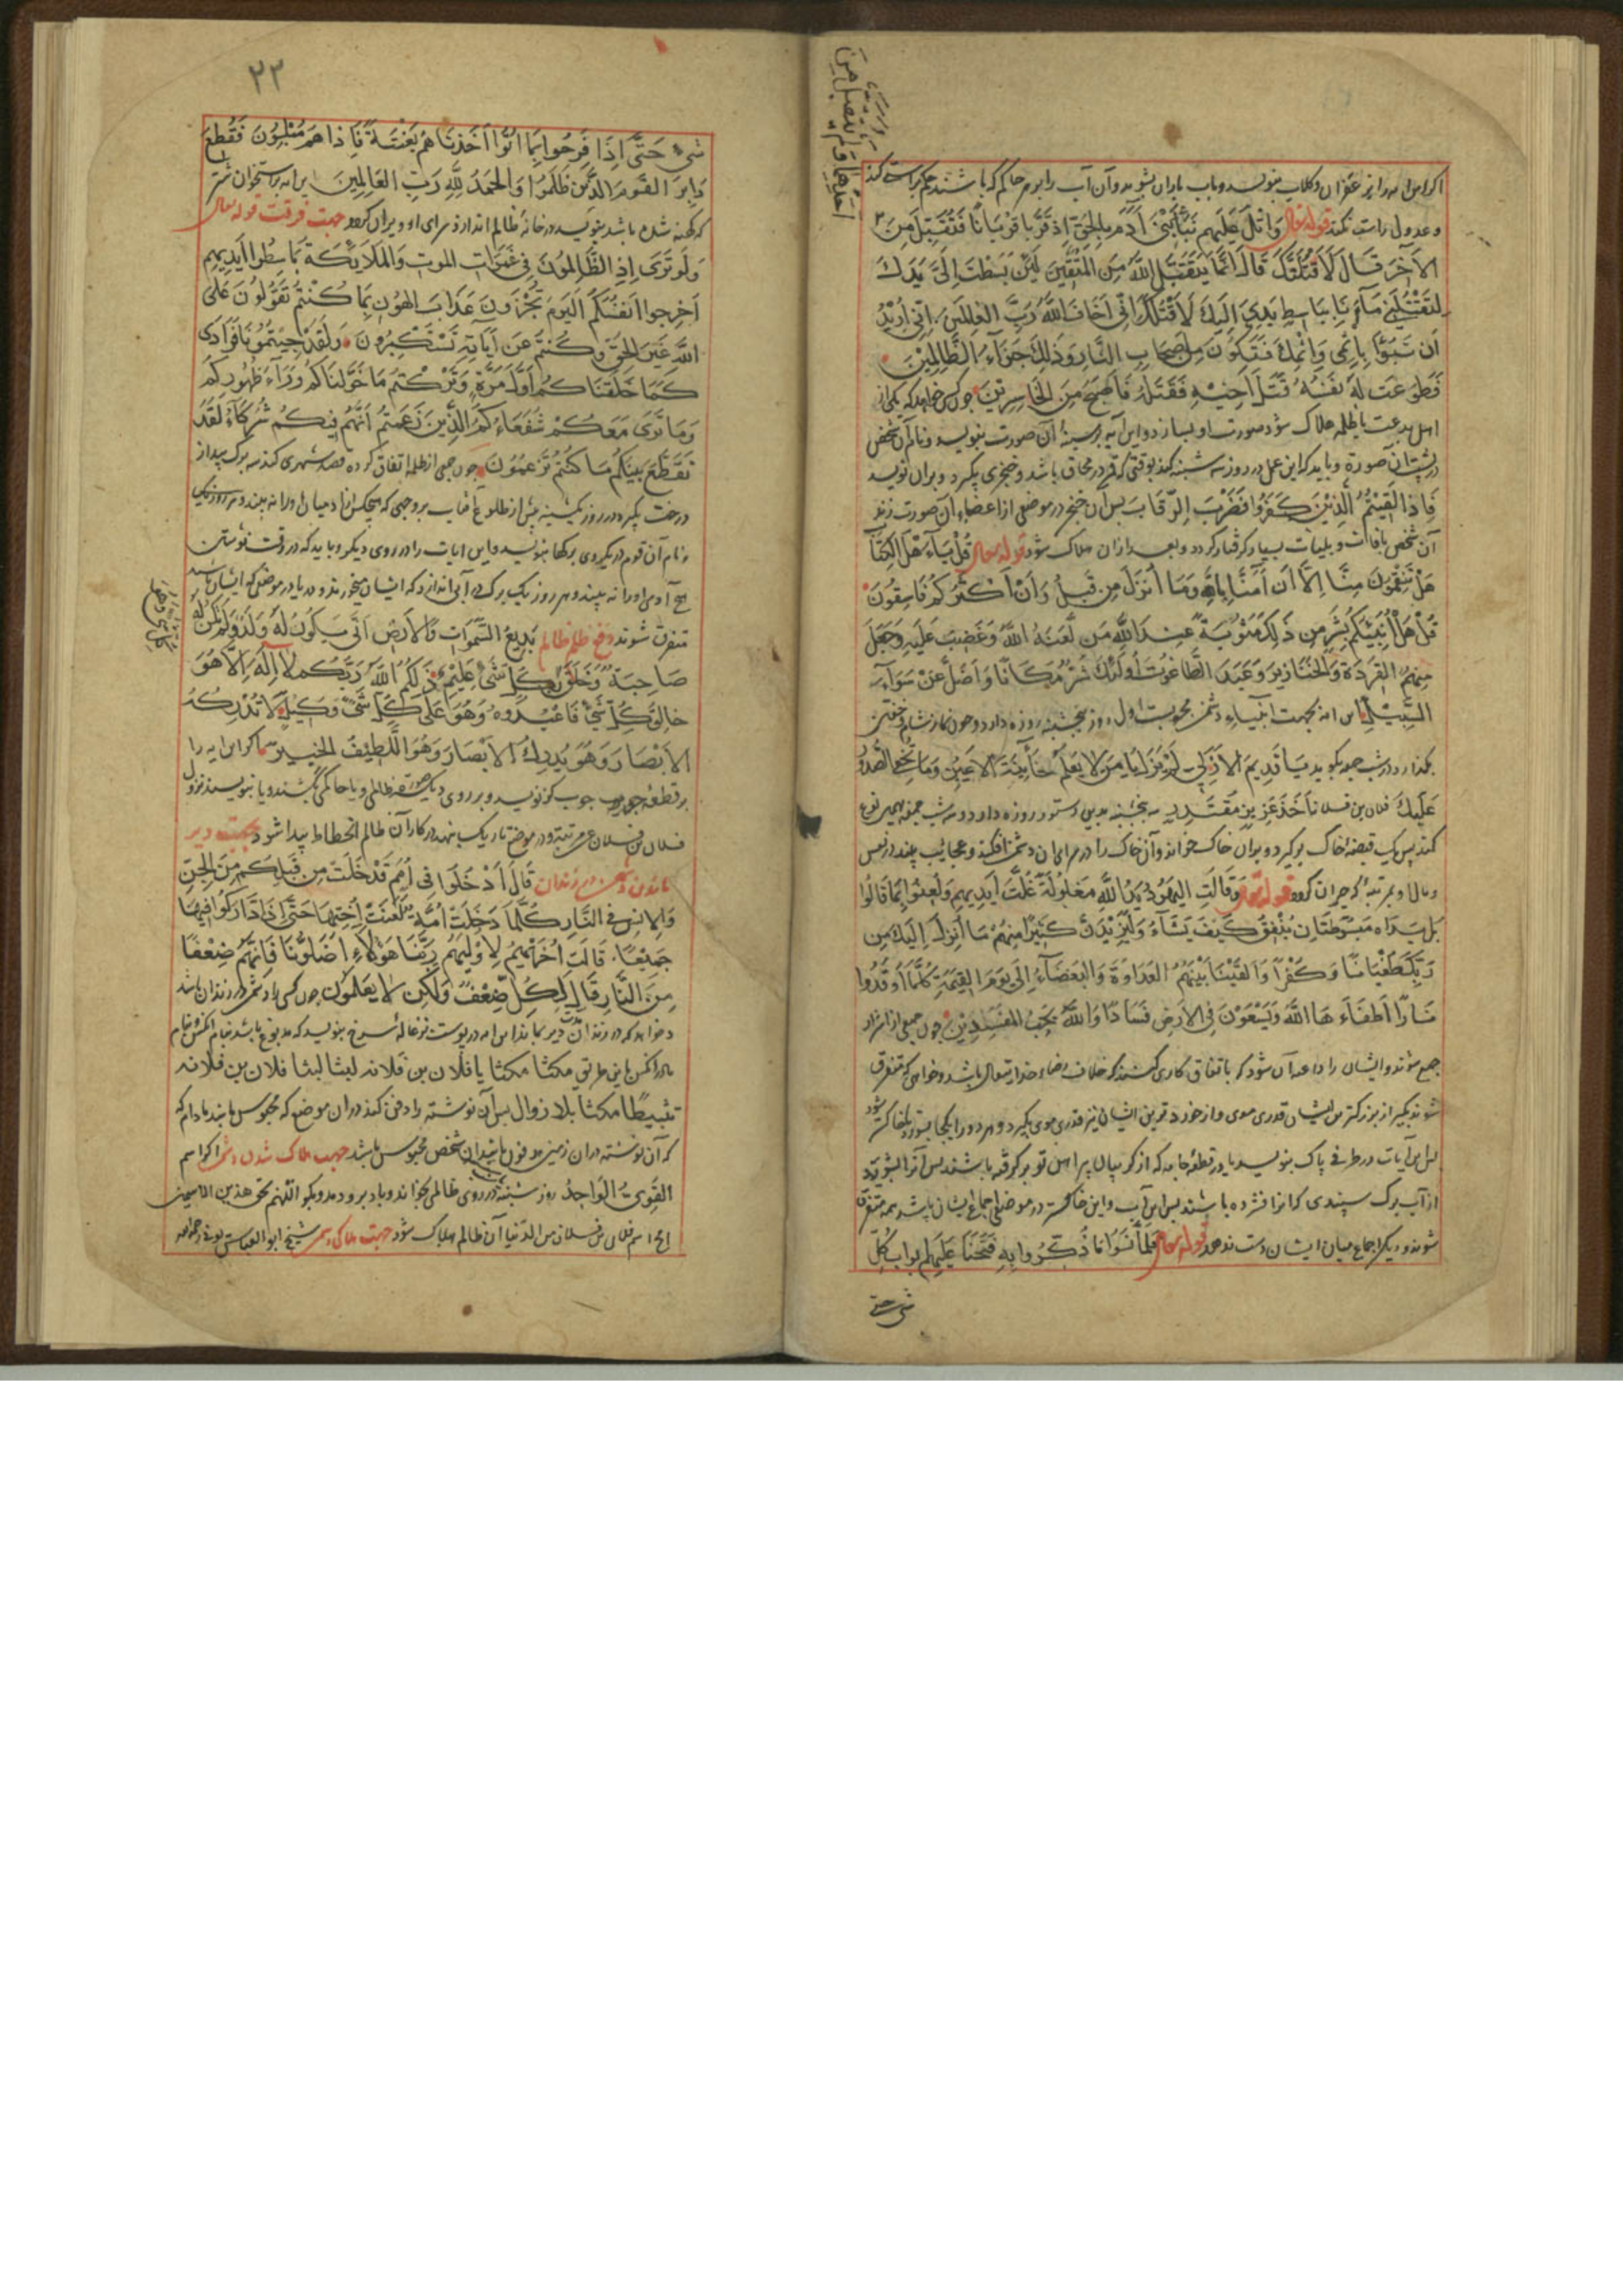 اگر این آیه را بزعفران و گلاب بنویسد و بآب باران بشوید و آن آب را بر در حاکم که باشند حکم براستی کند
و عدول راست کند قوله تعالی وَاتْلُ عَلَيْهِم نَبَأَ ابْنَیْ آدَمَ بِالحَقِّ اِذ قَرَّبَا قُرْبَانًا فَتُقُبِّلَ مِنْ
الآخَرِ قَالَ لَأَقْتُلَنَّكَ قَالَ اِنَّمَا يَتَقَبَّلُ اللهُ مِنَ المُتَّقِينَ لَئِن بَسَطْتَ اِلَیَّ يَدَكَ
لِتَقْتُلَنِی مَا اَنَا بِبَاسِطٍ يَدِیَ اِلَيْكَ لَاَقْتُلَكَ اِنِّی اَخَافُ اللهَ رَبَّ العٰلَمِينَ اِنِّی اُرِيْدُ
اَن تَبُوْأَ بِاِثْمِی وَاِثْمِكَ فَتَكُوْنَ مِنْ اَصْحَابِ النَّارِ وَذٰلِكَ جَزَاءُ الظَّالِمِيْنَ
فَطَوَّعَت لَهُ نَفْسُهُ قَتْلَ اَخِيْهِ فَقَتَلَهُ فَاَصْبَحَ مِنَ الخَاسِرِيْنَ چون کسی خواهد که یکی از
اهل بدعت یا ظلمه هلاک شود صورت او بسازد و این آیه بر سینهٔ آن صورت بنویسد و نام آن شخص
در پشت آن صورة و باید که این عمل در روز سه شنبه کند بوقتی که قمر در محاق باشد و خنجری بگیرد و بر آن نویسد
فَاِذَا لَقِيْتُمُ الَّذِيْنَ كَفَرُوا فَضَرْبَ الرِّقَابِ پس آن خنجر در موضعی از اعضاء آن صورت زند
آن شخص بآفات و بلیات بسیار گرفتار گردد و بعد از آن هلاک شود قوله تعالی قُلْ يَا اَهْلَ الكِتَابِ
هَلْ تَنْقِمُوْنَ مِنَّا اِلَّا اَنْ اٰمَنَّا بِاللهِ وَمَا اُنْزِلَ مِن قَبْلُ وَاَنَّ اَكْثَرَكُمْ فَاسِقُوْنَ
قُلْ هَلْ اُنَبِّئُكُم بِشَرٍّ مِن ذٰلِكَ مَثُوْبَةً عِنْدَ اللهِ مَن لَعَنَهُ اللهُ وَغَضِبَ عَلَيْهِ وَجَعَلَ
مِنْهُمُ القِرَدَةَ وَالخَنَازِيْرَ وَعَبَدَ الطَّاغُوْتَ اُولٰئِكَ شَرٌّ مَكَانًا وَاَضَلُّ عَنْ سَوَاءِ
السَّبِيْلِ این آیه بجهت دشمن مجربست اول روز پنجشنبه روزه دارد و چون نماز شام و خفتن
بگذارد در شب جمعه بگوید يَا قَدِيمُ الاَزَلِیّ لَمْ يَزَلْ يَا مَنْ يَعْلَمُ خَائِنَةَ الاَعْيُنِ وَمَا تُخْفِی الصُّدُوْر
عَلَيْكَ فلان بن فلان اَخْذَ عَزِيْزٍ مُقْتَدِرٍ سه پنجشنبه بدین دستور روزه دارد و سه شب جمعه بهمین نوع
کند پس یک قبضه خاک برگیرد و بر آن خاک خواند و آن خاک را در سرای آن دشمن افکند و عجایب بیند در نفس
و مال او بمرتبهٔ که حیران گردد قوله تعالی وَقَالَتِ اليَهُوْدُ يَدُ اللهِ مَغْلُوْلَةٌ غُلَّتْ اَيْدِيهِمْ وَلُعِنُوْا بِمَا قَالُوْا
بَلْ يَدَاهُ مَبْسُوْطَتَانِ يُنْفِقُ كَيْفَ يَشَاءُ وَلَيَزِيْدَنَّ كَثِيْرًا مِنْهُمْ مَا اُنْزِلَ اِلَيْكَ مِن
رَبِّكَ طُغْيَانًا وَكُفْرًا وَاَلْقَيْنَا بَيْنَهُمُ العَدَاوَةَ وَالبَغْضَاءَ اِلَى يَوْمِ القِيٰمَةِ كُلَّمَا اَوْقَدُوْا
نَارًا اَطْفَاَهَا اللهُ وَيَسْعَوْنَ فِی الاَرْضِ فَسَادًا وَاللهُ لَا يُحِبُّ المُفْسِدِيْنَ چون جمعی از اشرار
جمع شوند و ایشان را داعیه آن شود که باتفاق کاری کنند که خلاف رضاء خدای تعالی باشد و خواهی که متفرق
شوند بگیر از بزرگتر ایشان قدری موی و از خردترین ایشان نیز قدری موی بگیرد و هر دو را یکجا بسوزد تا خاکستر شود
پس این آیات در ظرفی پاک بنویسد یا در قطعهٔ جامه که از گریبال پیراهن تو برگرفته باشند پس آنرا بشوید
از آب برگ سپندی که آنرا فشرده باشند پس این آب و این خاکستر در موضع اجماع ایشان پاشد همه متفرق
شوند و دیگر اجماع میان ایشان دست ندهد قوله تعالی فَلَمَّا نَسُوْا مَا ذُكِّرُوْا بِهِ فَتَحْنَا عَلَيْهِم ابواب كُلِّ
شیء حتی
٢٢
شَیْءٍ حَتّٰى اِذَا فَرِحُوا بِمَا اُتُوْا اَخَذْنَاهُمْ بَغْتَةً فَاِذَا هُمْ مُبْلِسُوْنَ فَقُطِعَ
دَابِرُ القَوْمِ الَّذِيْنَ ظَلَمُوْا وَالحَمْدُ لِلّٰهِ رَبِّ العَالَمِيْنَ این آیه بر استخوان شتر
که کهنه شده باشد بنویسد در خانهٔ ظالم اندازد سرای او ویران گردد جهت فرقت قوله تعالی
وَلَوْ تَرَى اِذِ الظَّالِمُوْنَ فِی غَمَرَاتِ المَوْتِ وَالمَلَائِكَةُ بَاسِطُوا اَيْدِيهِمْ
اَخْرِجُوا اَنْفُسَكُمُ اليَوْمَ تُجْزَوْنَ عَذَابَ الهُوْنِ بِمَا كُنْتُمْ تَقُوْلُوْنَ عَلَى
اللهِ غَيْرَ الحَقِّ وَكُنْتُمْ عَنْ اٰيَاتِهِ تَسْتَكْبِرُوْنَ وَلَقَدْ جِئْتُمُوْنَا فُرَادَى
كَمَا خَلَقْنَاكُمْ اَوَّلَ مَرَّةٍ وَتَرَكْتُمْ مَا خَوَّلْنَاكُمْ وَرَاءَ ظُهُوْرِكُمْ
وَمَا نَرَى مَعَكُمْ شُفَعَاءَكُمُ الَّذِيْنَ زَعَمْتُمْ اَنَّهُمْ فِيْكُمْ شُرَكَاءُ لَقَدْ
تَقَطَّعَ بَيْنَكُمْ مَا كُنْتُمْ تَزْعُمُوْنَ چون جمعی از ظلمه اتفاق کرده قصد شهری کنند سه برگ بید از
درخت بگیرد در روز یکشنبه پیش از طلوع آفتاب بروجهی که هیچکس از آدمیان او را نه بیند و
و نام آن قوم در یکروی برگها بنویسد و این آیات را در روی دیگر و باید که در وقت نوشتن
هیچ آدمی او را نه بیند و هر روز یک برگ در آبی اندازد که ایشان میخورند و یا در موضعی که ایشان باشند
متفرق شوند دفع ظلم ظالم بَدِيْعُ السَّمٰوَاتِ وَالاَرْضِ اَنَّى يَكُوْنُ لَهُ وَلَدٌ وَلَمْ تَكُنْ لَهُ
صَاحِبَةٌ وَخَلَقَ كُلَّ شَیْءٍ عَلِيْمٌ ذٰلِكُمُ اللهُ رَبُّكُمْ لَا اِلٰهَ اِلَّا هُوَ
خَالِقُ كُلِّ شَیْءٍ فَاعْبُدُوْهُ وَهُوَ عَلَى كُلِّ شَیْءٍ وَكِيْلٌ لَا تُدْرِكُهُ
الاَبْصَارُ وَهُوَ يُدْرِكُ الاَبْصَارَ وَهُوَ اللَّطِيْفُ الخَبِيْرُ اگر این آیه را
بر قطعهٔ چوب گز نویسد و بر روی دیگر صورة ظالمی و یا حاکمی بکشند و یا بنویسند نزول
فلان بن فلان عن مرتبته و در موضع تاریک بنهد در کار آن ظالم انحطاط پیدا شود جهت دیر
ماندن دشمن در زندان قَالَ ادْخُلُوْا فِی اُمَمٍ قَدْ خَلَتْ مِن قَبْلِكُمْ مِنَ الجِنِّ
وَالاِنْسِ فِی النَّارِ كُلَّمَا دَخَلَتْ اُمَّةٌ لَعَنَتْ اُخْتَهَا حَتّٰى اِذَا ادَّارَكُوْا فِيْهَا
جَمِيْعًا قَالَتْ اُخْرٰيهُمْ لِاُوْلٰيهُمْ رَبَّنَا هٰؤُلَاءِ اَضَلُّوْنَا فَاٰتِهِمْ ضِعْفًا
مِنَ النَّارِ قَالَ لِكُلٍّ ضِعْفٌ وَلٰكِن لَا يَعْلَمُوْنَ چون کسی را دشمن در زندان باشد
و خواهد که در زندان دیر بماند این آیه در پوست بزغالهٔ سرخ بنویسد که مدبوغ باشد بنام آنکس و نام
مادر آنکس باین طریق مکثا مکثا یا فلان بن فلانه لبثا لبثا فلان بن فلانه
تثبیطا مکثا بلا زوال پس آن نوشته را دفن کند در آن موضع که محبوس باشد مادام که
که آن نوشته در آن زمین مدفون باشد آن شخص محبوس باشد جهت هلاک شدن دشمن اگر اسم
القَوِیُّ الوَاجِدُ روز شنبه در روی ظالمی بخواند و باد برو دمد و بگو اللّهم بحق هذین الاسمین
اسم فلان بن فلان من الدنیا آن ظالم هلاک شود جهت هلاکی دشمن شیخ ابوالعباس بونی رحمه الله